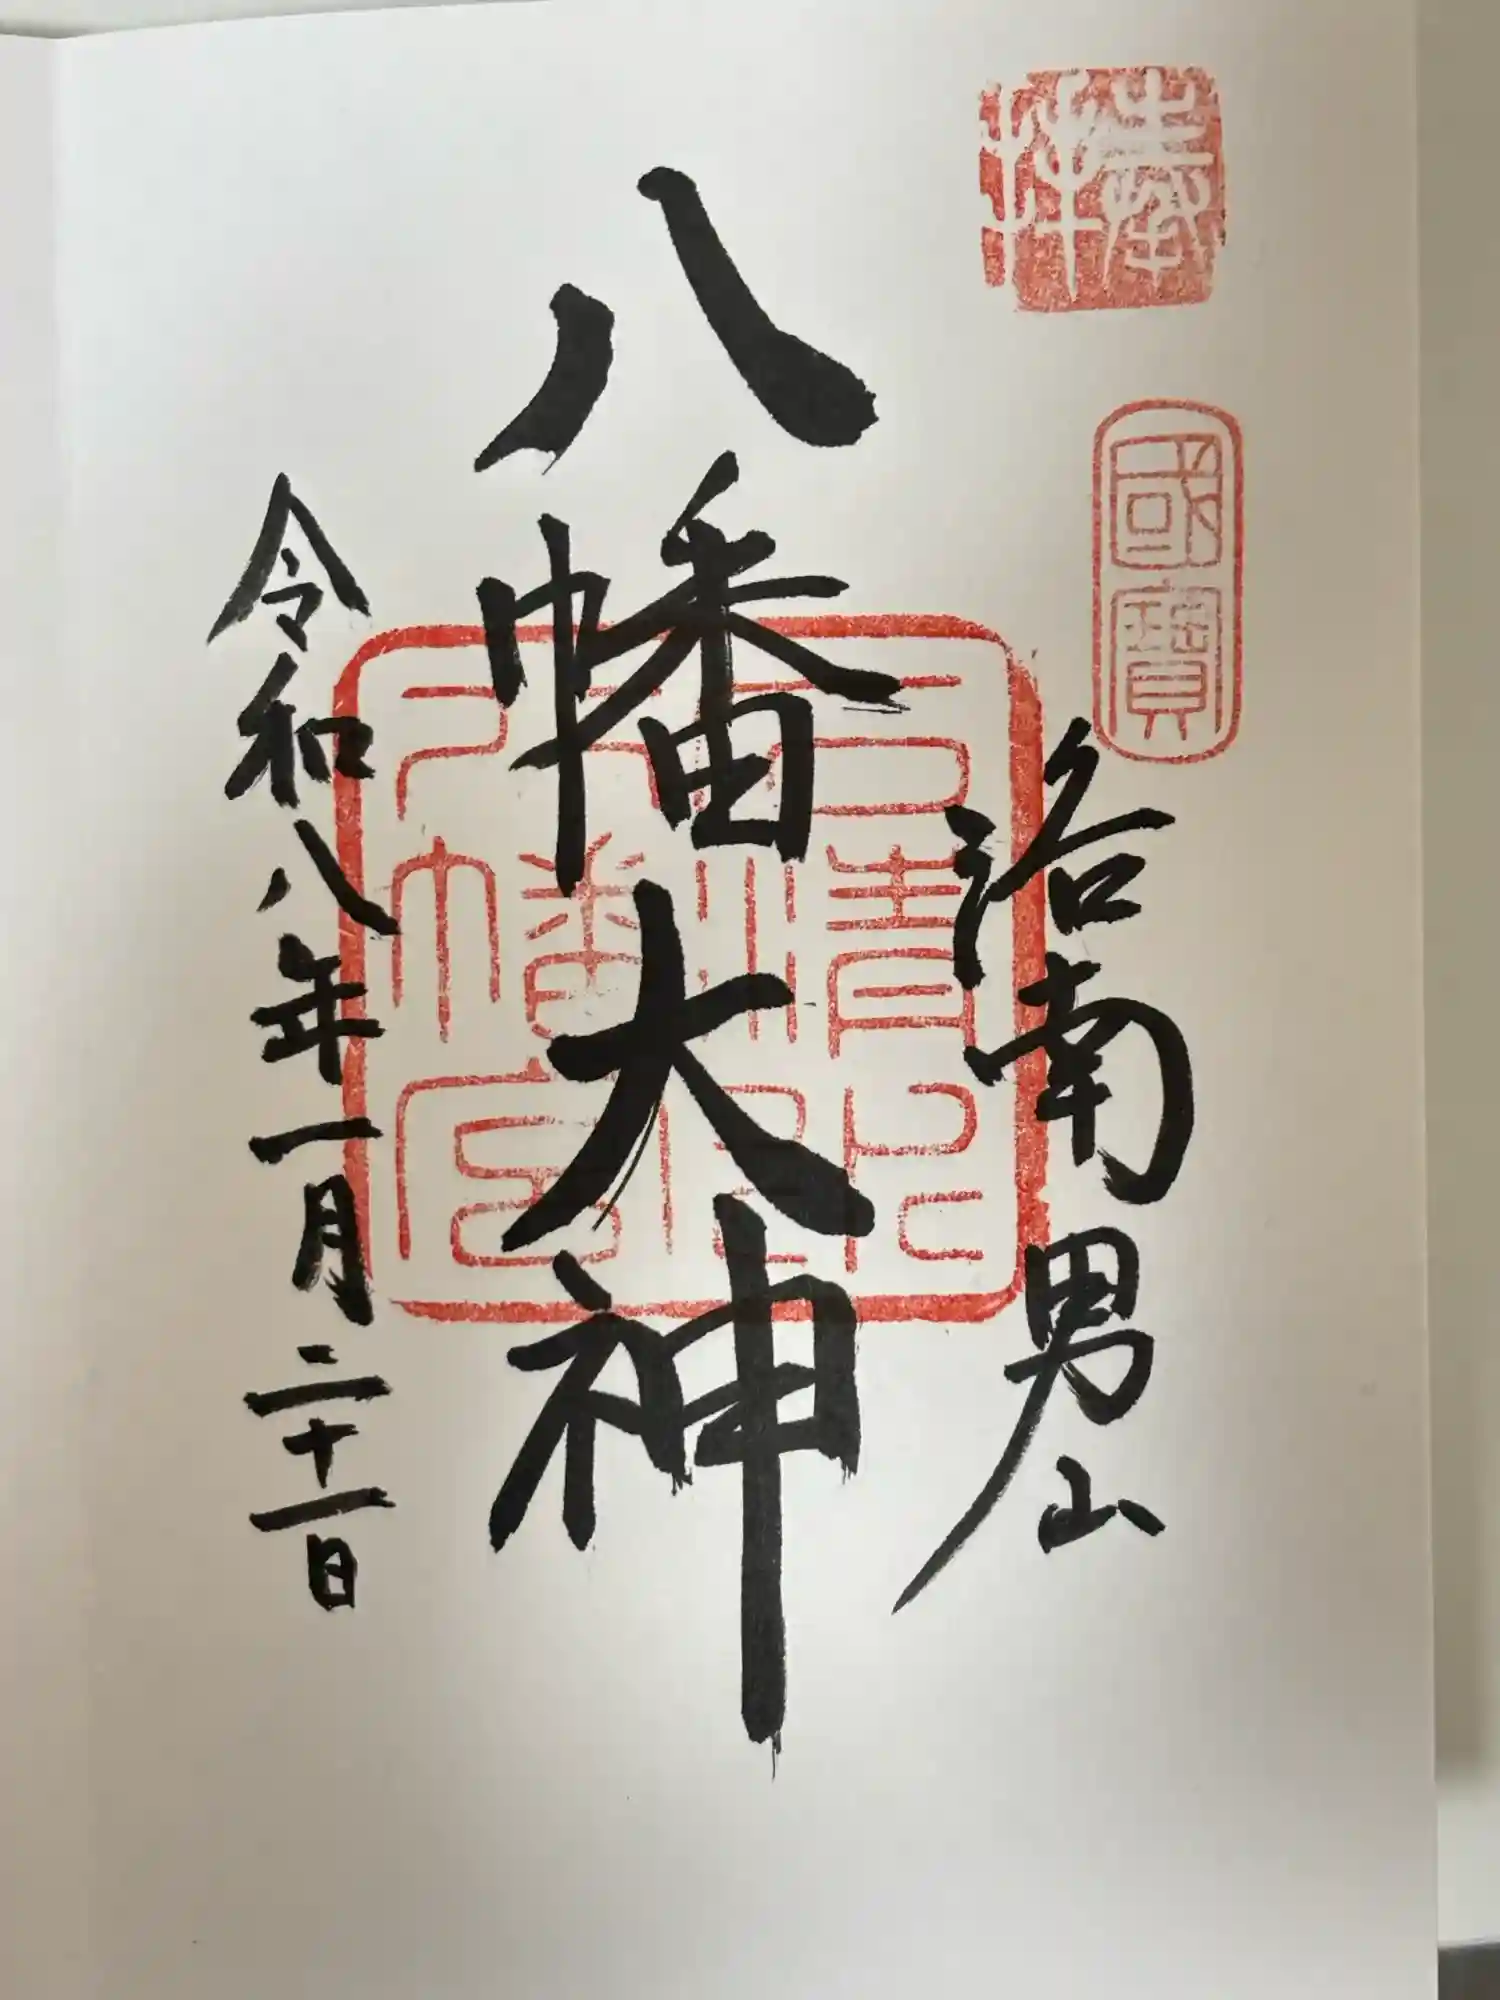 奉拝
國寶
洛南男山
八幡大神
石清
八幡宮
令和八年一月二十一日